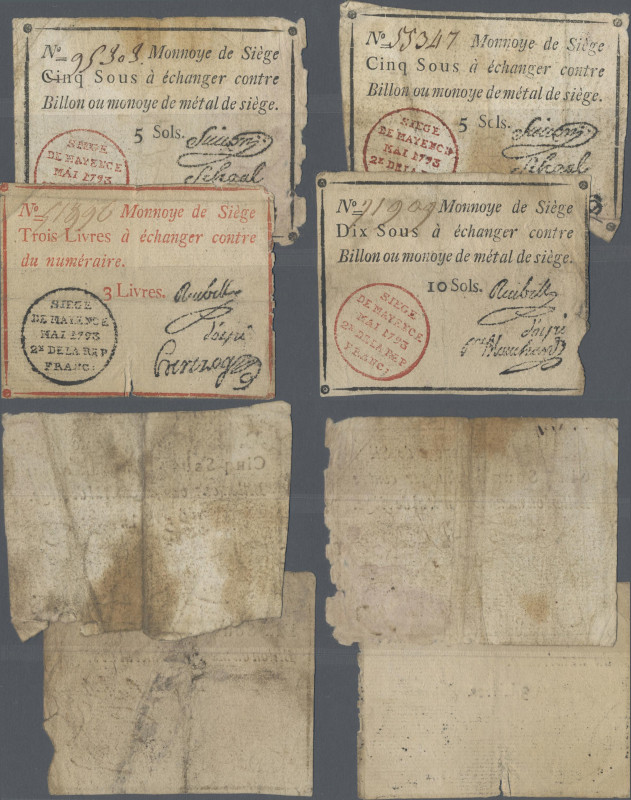 No. 95303 Monnoye de Siège
Cinq Sous à échanger contre
Billon ou monoye de métal de siège.
5 Sols.
SIEGE
DE MAYENCE
MAI 1793
No. 55347 Monnoye de Siège
Cinq Sous à échanger contre
Billon ou monoye de métal de siège.
5 Sols.
SIEGE
DE MAYENCE
MAI 1793
2E DE LA
No. Monnoye de Siège
Trois Livres à échanger contre
du numéraire.
3 Livres. Reubell
SIEGE
DE MAYENCE
MAI 1793
2E DE LA REP
FRANCI
No. Monnoye de Siège
Dix Sous à échanger contre
Billon ou monoye de métal de siège.
10 Sols. Reubell
SIEGE
DE MAYENCE
MAI 1793
2E DE LA REP
FRANCI
Cinq Sous